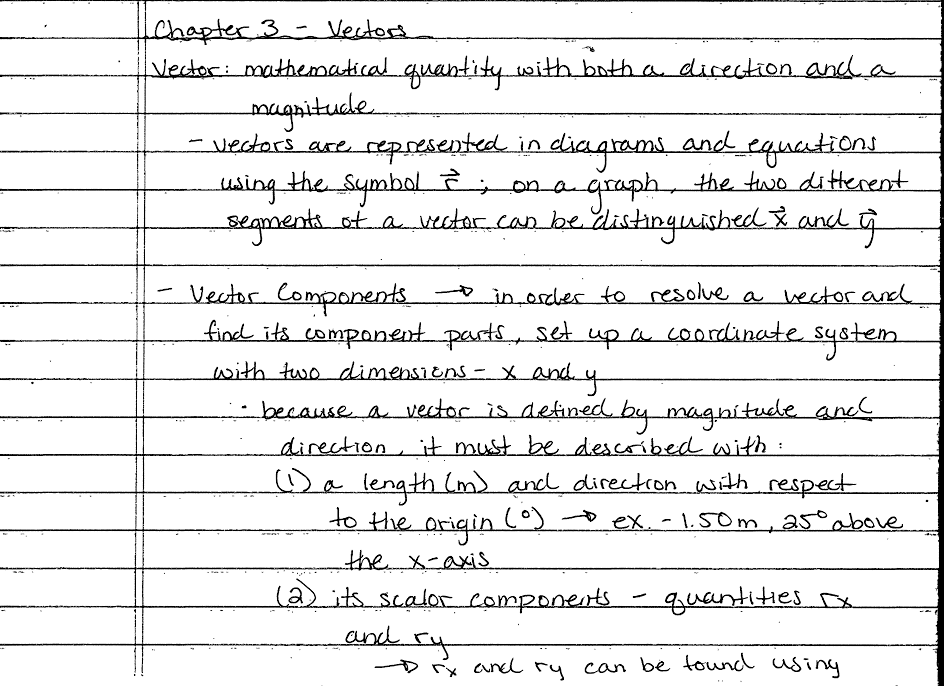 Chapter 3 - Vectors
Vector: mathematical quantity with both a direction and a
magnitude
- vectors are represented in diagrams and equations
using the symbol r⃗ ; on a graph, the two different
segments of a vector can be distinguished x⃗ and y⃗
- Vector Components → in order to resolve a vector and
find its component parts, set up a coordinate system
with two dimensions - x and y
· because a vector is defined by magnitude and
direction, it must be described with:
(1) a length (m) and direction with respect
to the origin (°) → ex. - 1.50m, 25° above
the x-axis
(2) its scalor components - quantities rx
and ry
→ rx and ry can be found using